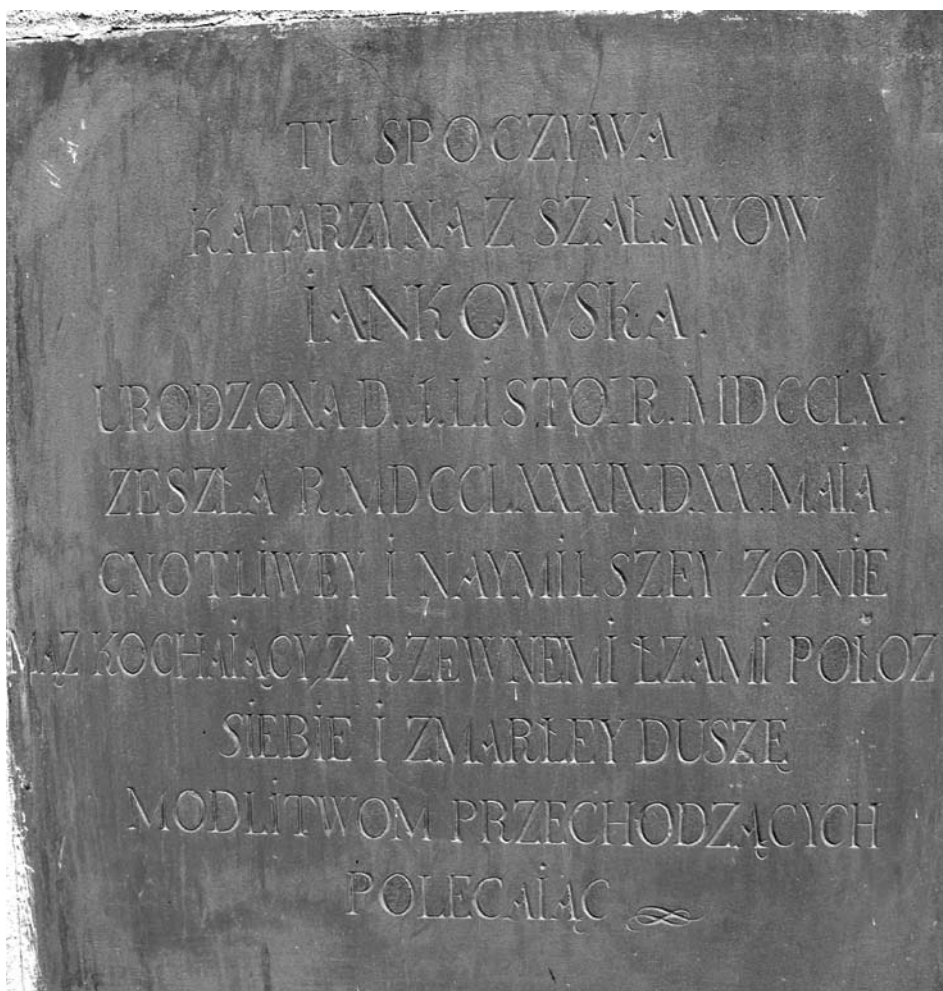 TU SPOCZYWA
KATARZYNA Z SZAŁAWOW
IANKOWSKA.
URODZONA D. 1. LISTO: R. MDCCLX.
ZESZŁA R. MDCCLXXXIV. D. XX. MAIA.
CNOTLIWEY I NAYMILSZEY ZONIE
MĄZ KOCHAIĄCY, Z RZEWNEMI ŁZAMI POŁOZ
SIEBIE I ZMARŁEY DUSZĘ
MODLITWOM PRZECHODZĄCYCH
POLECAIĄC